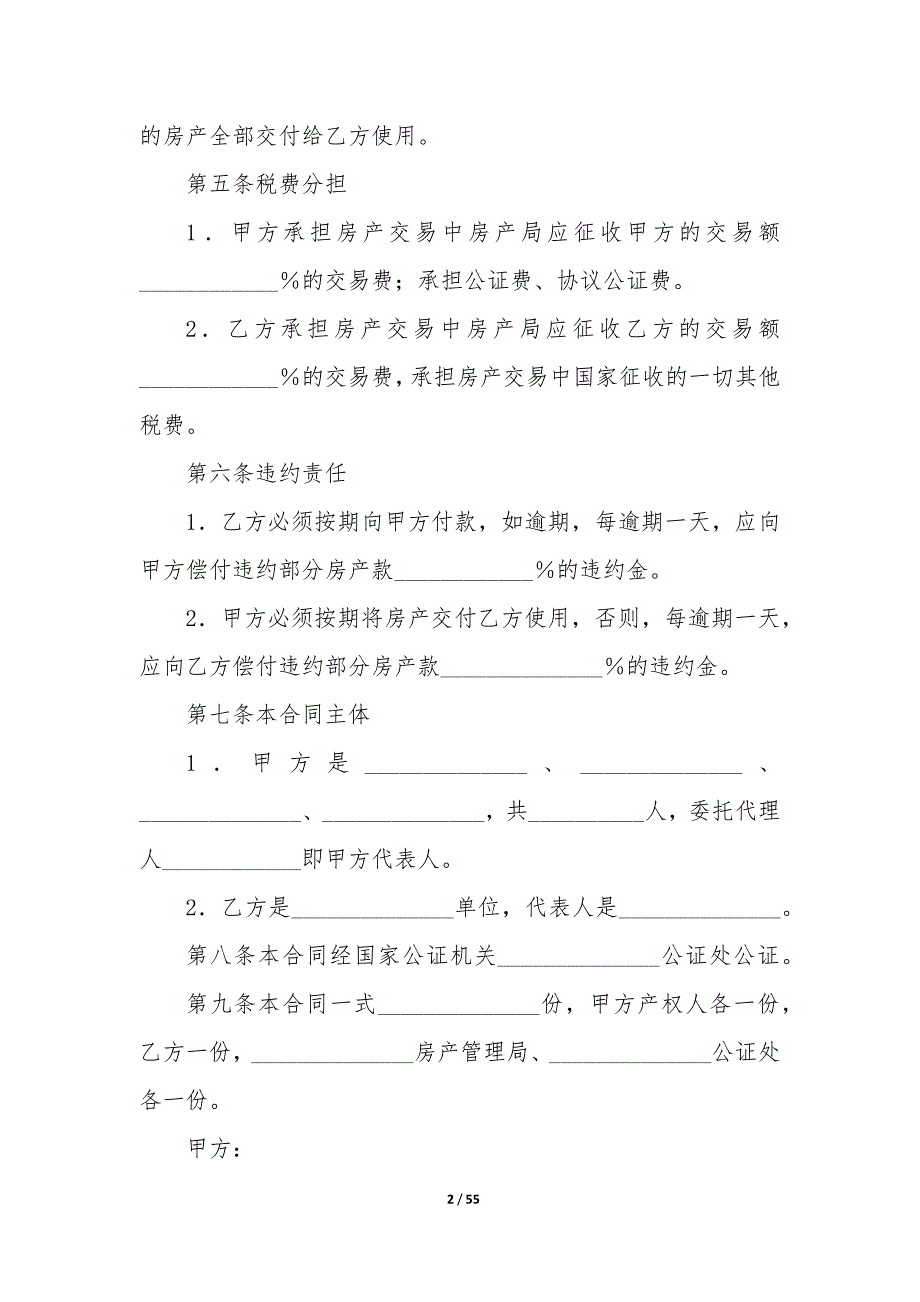 的房产全部交付给乙方使用。
第五条税费分担
1．甲方承担房产交易中房产局应征收甲方的交易额
____________%的交易费；承担公证费、协议公证费。
2．乙方承担房产交易中房产局应征收乙方的交易额
____________%的交易费，承担房产交易中国家征收的一切其他
税费。
第六条违约责任
1．乙方必须按期向甲方付款，如逾期，每逾期一天，应向
甲方偿付违约部分房产款____________%的违约金。
2．甲方必须按期将房产交付乙方使用，否则，每逾期一天，
应向乙方偿付违约部分房产款______________%的违约金。
第七条本合同主体
1．甲方是______________、______________、
______________、______________，共__________人，委托代理
人____________即甲方代表人。
2．乙方是______________单位，代表人是______________。
第八条本合同经国家公证机关______________公证处公证。
第九条本合同一式______________份，甲方产权人各一份，
乙方一份，______________房产管理局、______________公证处
各一份。
甲方：
2 / 55